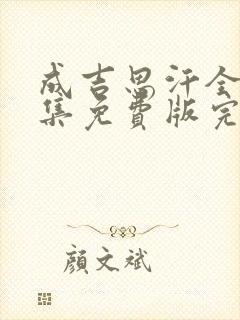 成吉思汗全
集免費版完
顏文斌